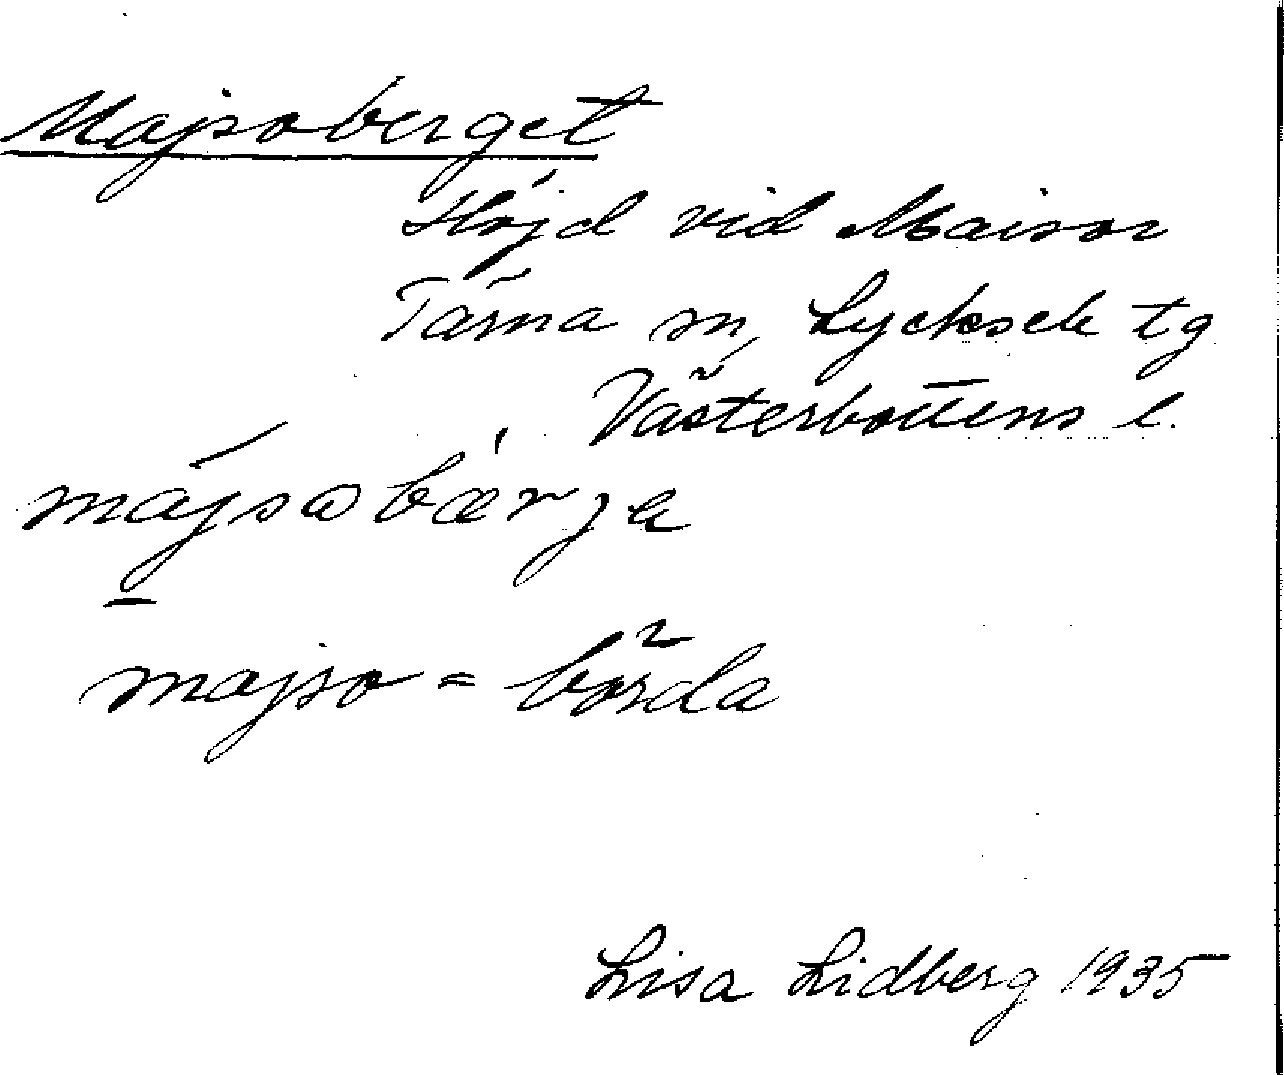 Majsoberget
Höjd vid Maisor
Tärna sn, Lycksele tg
Västerbottens l.
májsabærja
majso = börda
Lisa Lidberg 1935